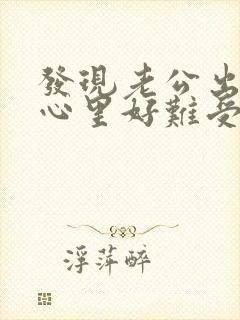 發現老公出
心里好難受
浮萍醉